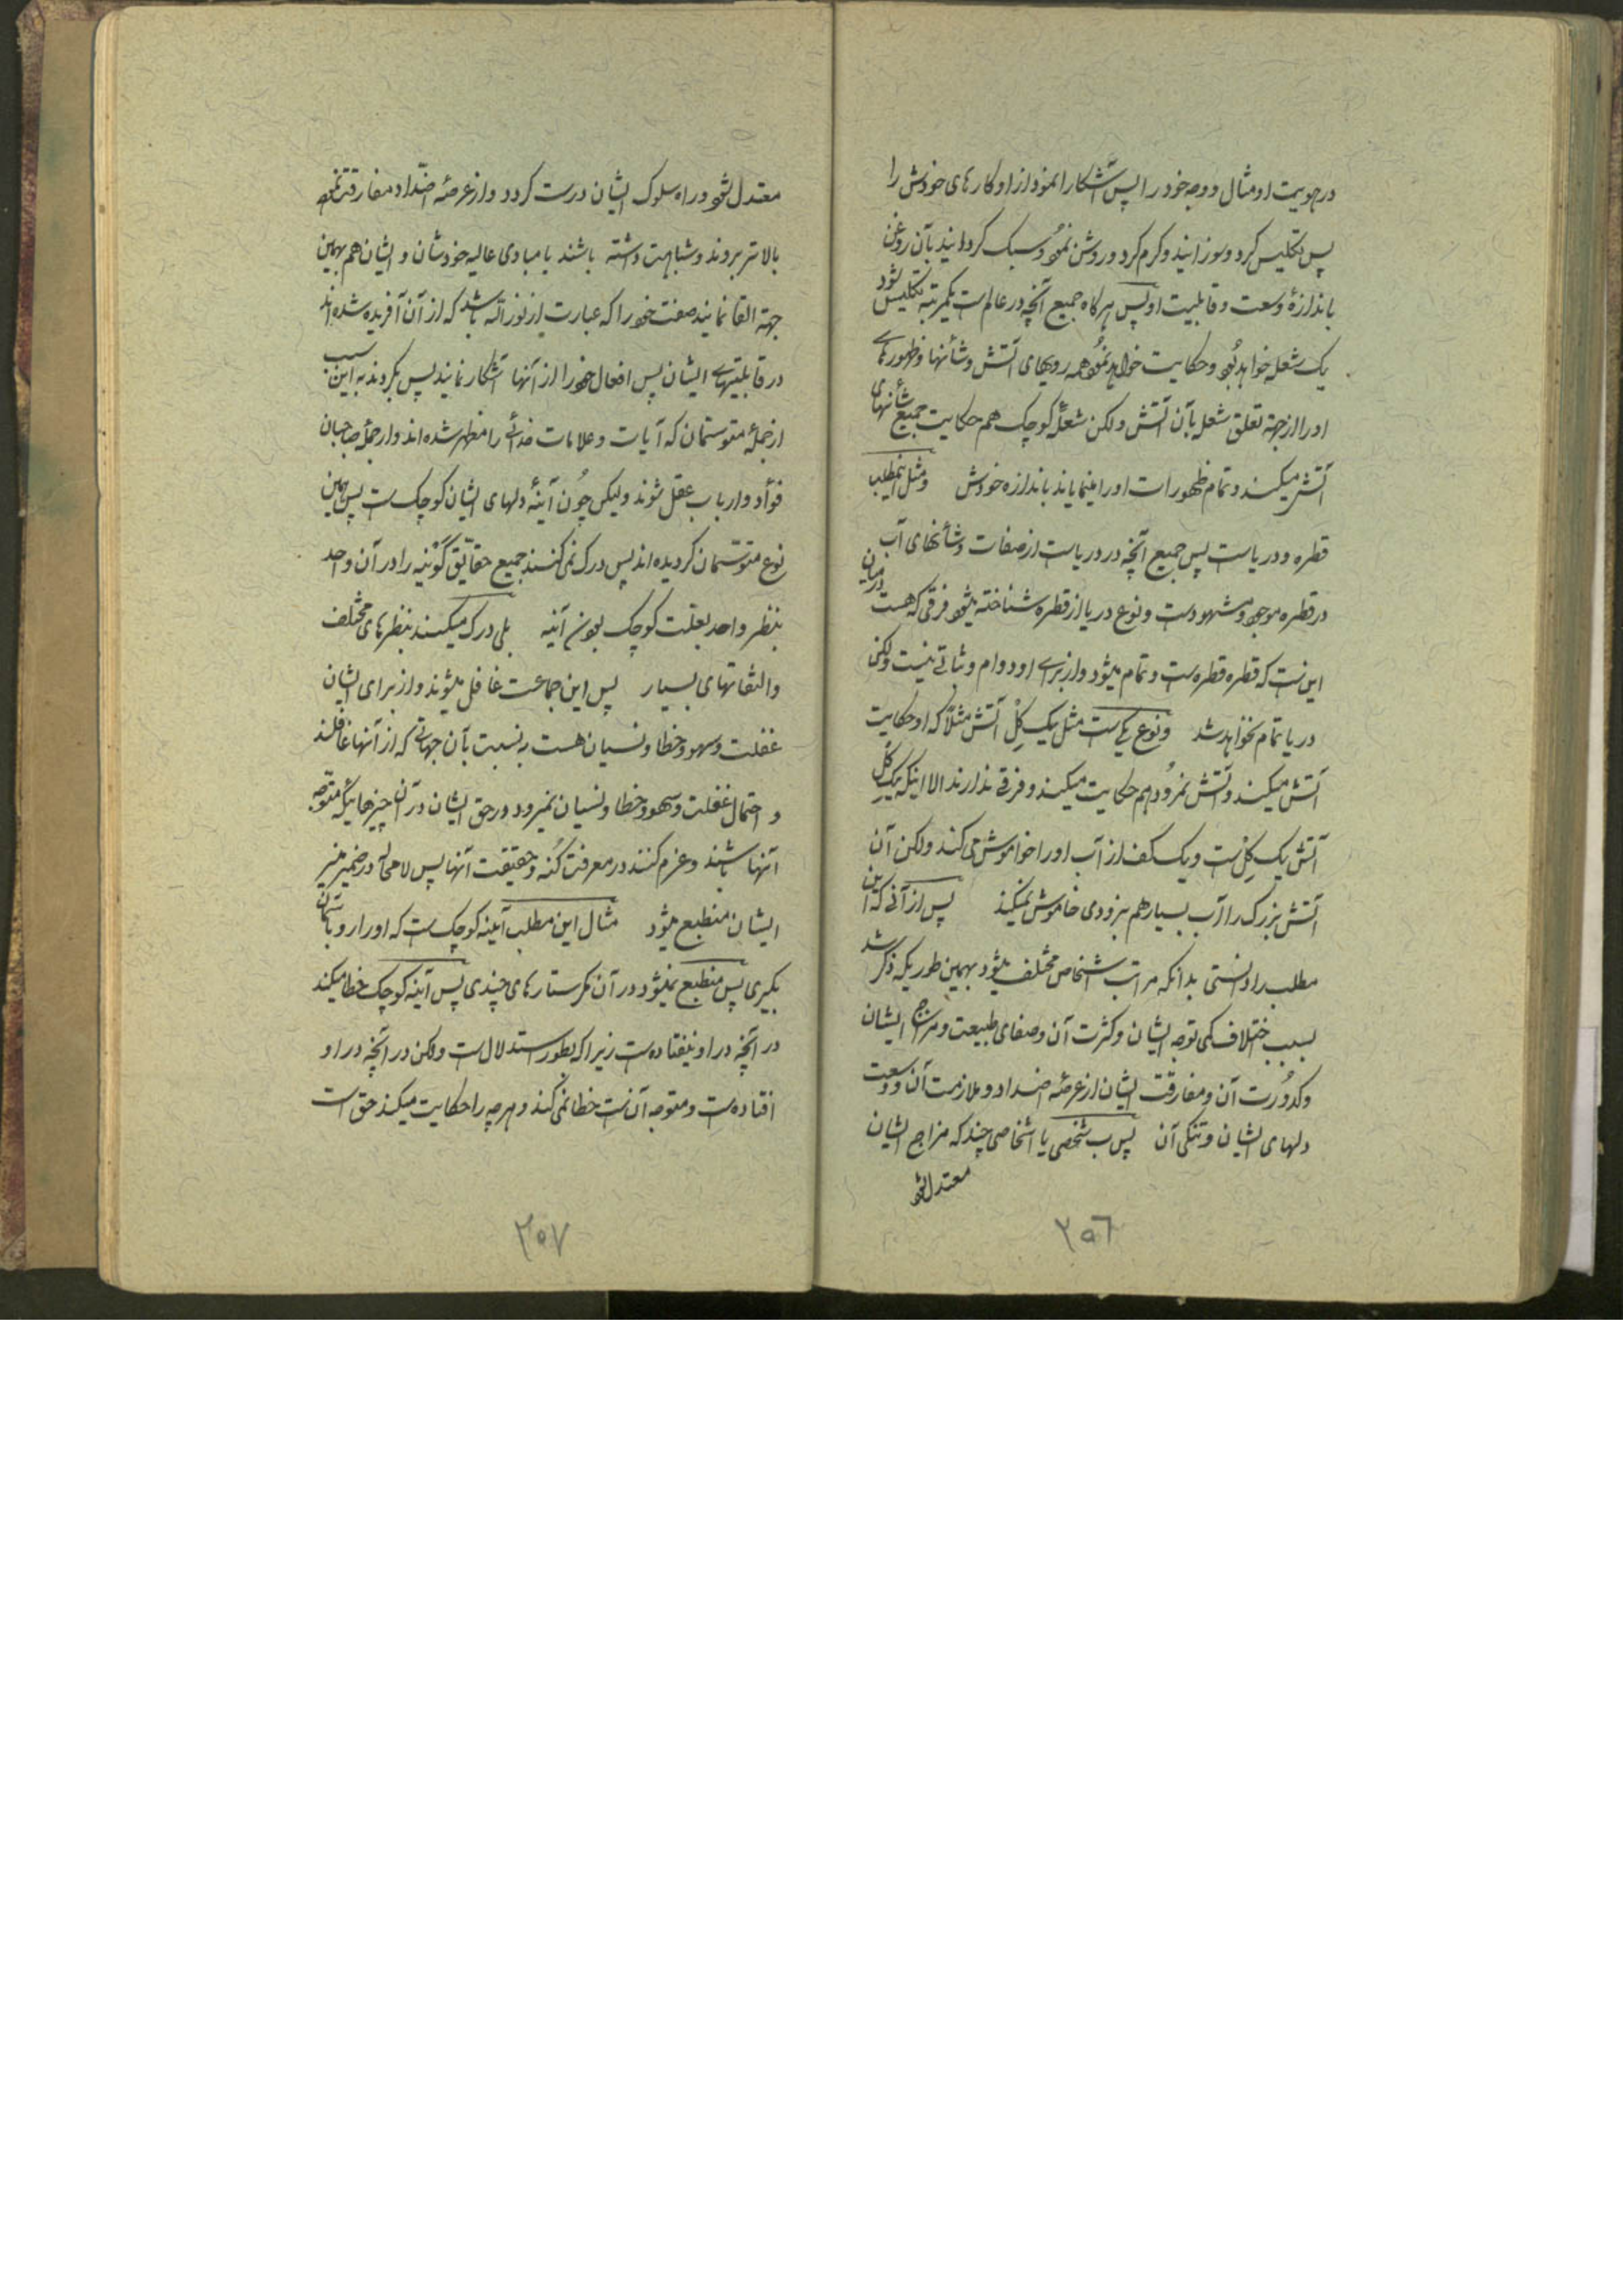 در هویت او مثال و وجه خود را پس آشکارا نمود از او کارهای خودش را
پس تکلیس کرد و سوزانید و گرم کرد و روشن نمود و سبک گردانید بآن روغن
باندازهٔ وسعت و قابلیت او پس هرگاه جمیع آنچه در عالم است یکمرتبه تکلیس شود
یک شعله خواهد بود و حکایت خواهد نمود همه رویهای آتش و شأنها و ظهورهای
او را از جهة تعلق شعله بآن آتش ولکن شعلهٔ کوچک هم حکایت جمیع شأنهای
آتش میکند و تمام ظهورات او را مینمایاند باندازه خودش و مثل اینمطلب
قطره و دریاست پس جمیع آنچه در دریاست از صفات و شأنهای آب
در قطره موجود و مشهود است و نوع دریا از قطره شناخته میشود فرقی که هست در میان
این است که قطره قطره است و تمام میشود و از برای او دوام و ثباتی نیست ولکن
دریا تمام نخواهد شد و نوع یکی است مثل یک گل آتش مثلاً که او حکایت
آتش میکند و آتش نمرود هم حکایت میکند و فرقی ندارند الا اینکه یک گل
آتش یک گل است و یک کف از آب او را خواموش می کند ولکن آن
آتش بزرگ را آب بسیار هم بزودی خاموش نمیکند پس از آنی که این
مطلب را دانستی بدانکه مراتب اشخاص مختلف میشود بهمین طوریکه ذکر شد
بسبب اختلاف کمی توجه ایشان و کثرت آن و صفای طبیعت و مزاج ایشان
و کدورت آن و مفارقت ایشان از عرصهٔ اضداد و ملازمت آن و وسعت
دلهای ایشان و تنگی آن پس بسا شخصی یا اشخاصی چند که مزاج ایشان
معتدل شود
۲۵۶
معتدل شود و راه سلوک ایشان درست گردد و از عرصهٔ اضداد مفارقت نموده
بالاتر بروند و شباهت داشته باشند با مبادی عالیه خودشان و ایشان هم بهمین
جهة القا نمایند صفت خود را که عبارت از نور الله باشد که از آن آفریده شده اند
در قابلیتهای ایشان پس افعال خود را از آنها آشکار نمایند پس بگردند به این سبب
از جملهٔ متوسمان که آیات و علامات خدائی را مظهر شده اند و از جملهٔ صاحبان
فؤاد و ارباب عقل شوند ولیکن چون آینهٔ دلهای ایشان کوچک است پس همین
نوع متوسمان گردیده اند پس درک نمی کنند جمیع حقایق کونیه را در آن واحد
بنظر واحد بعلت کوچک بودن آینه بلی درک میکنند بنظرهای مختلف
و التفاتهای بسیار پس این جماعت غافل میشوند و از برای ایشان
غفلت و سهو و خطا و نسیان هست به نسبت بآن جهاتی که از آنها غافلند
و احتمال غفلت و سهو و خطا و نسیان نمیرود در حق ایشان در آن چیزهائیکه متوجه
آنها باشند و عزم کنند در معرفت کُنه و حقیقت آنها پس لامحاله در ضمیر منیر
ایشان منطبع میشود مثال این مطلب آینه کوچک است که او را رو باسمان
بگیری پس منطبع نمیشود در آن مگر ستارهای چندی پس آینه کوچک خطا میکند
در آنچه در او نیفتاده است زیرا که بطور استدلال است ولکن در آنچه در او
افتاده است و متوجه آن است خطا نمی کند و هرچه را حکایت میکند حق است
۲۵۷